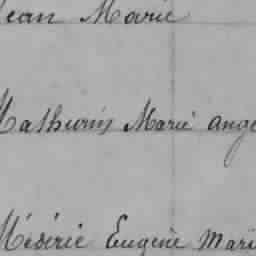 Jean Marie
Mathurin Marie ange
Médéric Eugène Mari